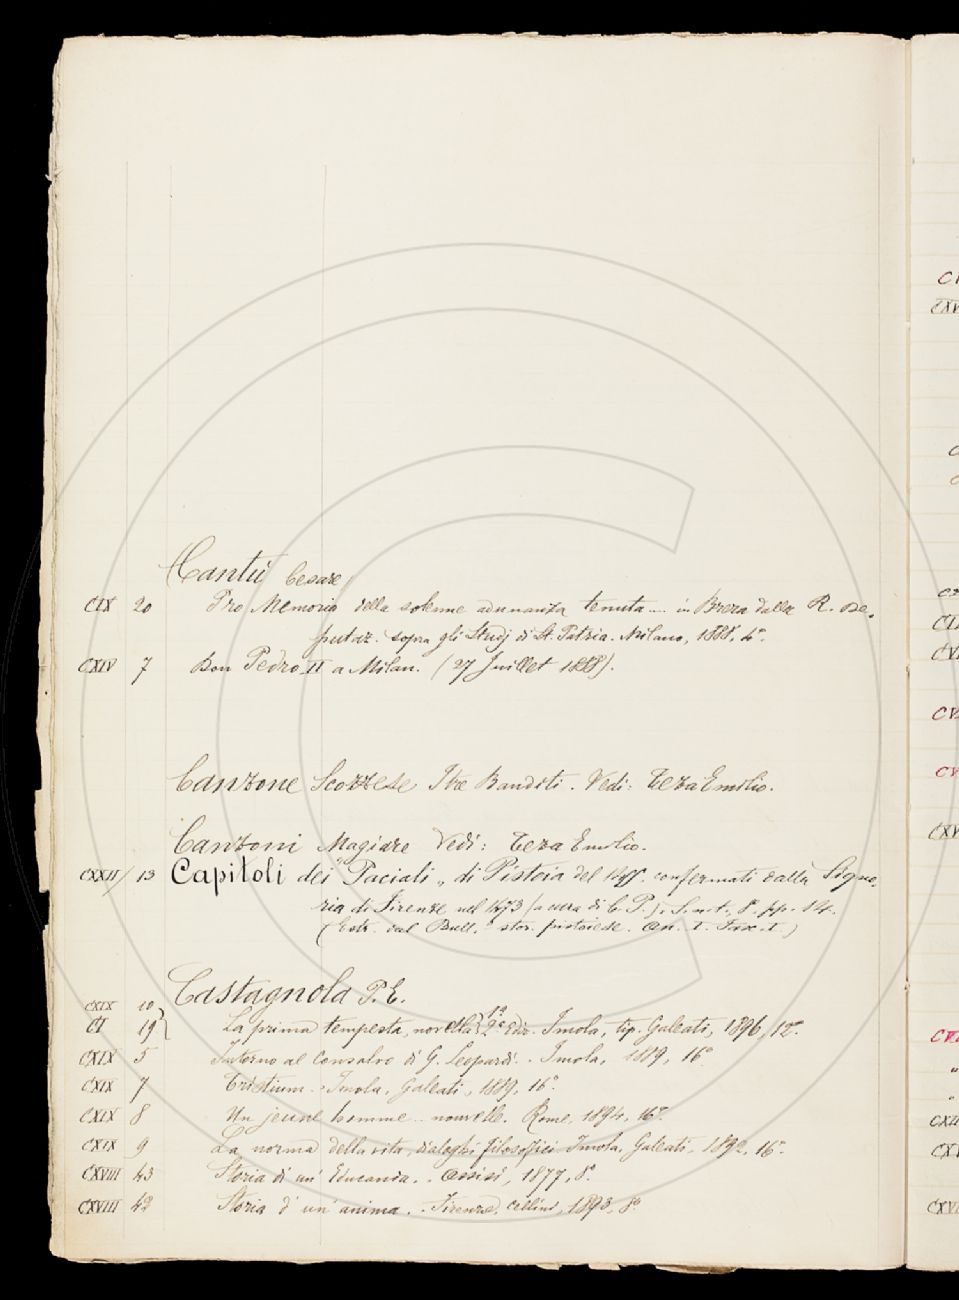 Cantù Cesare
CIX 20 Pro Memoria della solenne adunanza tenuta .... in Brera dalla R. De-
putaz. sopra gli Studj di St. Patria. Milano, 1888, 4°.
CXIV 7 Don Pedro II a Milan. (27 Juillet 1888).
Canzone Scozzese Tre Banditi. Vedi: Teza Emilio.
Canzoni Magiare Vedi: Teza Emilio.
CXXII / 13 Capitoli dei "Paciali" di Pistoia del confermati dalla Signo-
ria di Firenze nel 1473 (a cura di C. P.), S. n. t., 8°, pp. 14.
(Estr. dal Bull.° stor. pistoiese. An. I. Fasc. I.)
Castagnola P. E.
CXIX 10
CI 19 La prima tempesta, novella 1a 2a Ediz. Imola, tip. Galeati, 1896, 12°.
CXIX 5 Intorno al Consalvo di G. Leopardi. - Imola, 16°
CXIX 7 Tristium. - Imola, Galeati, 1889, 16°.
CXIX 8 Un jeune homme .. nouvelle. Rome, 1894, 16°.
CXIX 9 La norma della vita, dialoghi filosofici Imola, Galeati, 1892, 16°.
CXVIII 43 Storia di un' Educanda. . Assisi, 1877, 8°.
CXVIII 42 Storia d' un' anima. . Firenze, Cellini, 1898, 8°